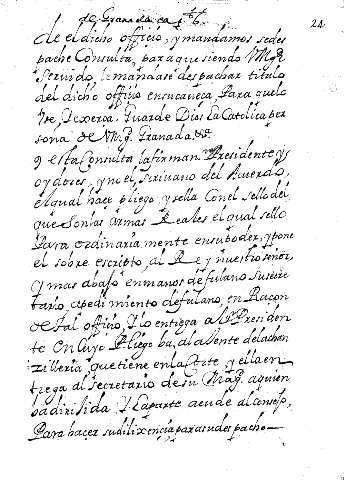 de Granada
24
de el dicho officio, y mandamos se des
pache Consulta, para que siendo V Mgd
servido le mandase despachar titulo
del dicho officio en su caveça, Para que lo
Guarde Dios La Catolica per
sona de V Mgd. Granada &a
y esta Consulta la firman Presidente y
oydores, y no el scrivano del Acuerdo,
el qual hace pliego, y sella Con el sello del
que son las armas Reales el qual sello
Para ordinariamente en su poder, y pone
el sobre escripto, al Rey nuestro señor,
y mas abajo en manos de fulano su secre
tario, a pedimiento de fulano, en Raçon
de tal officio, y lo entrega al Sr Presiden
te en Cuyo Pliego ba, al ajente de la chan
zilleria que tiene en la Corte, y ella en
trega al secretario de su Magd. a quien
ba dirijida, y la parte acude al consejo,
Para hacer su dilixençia para su despacho